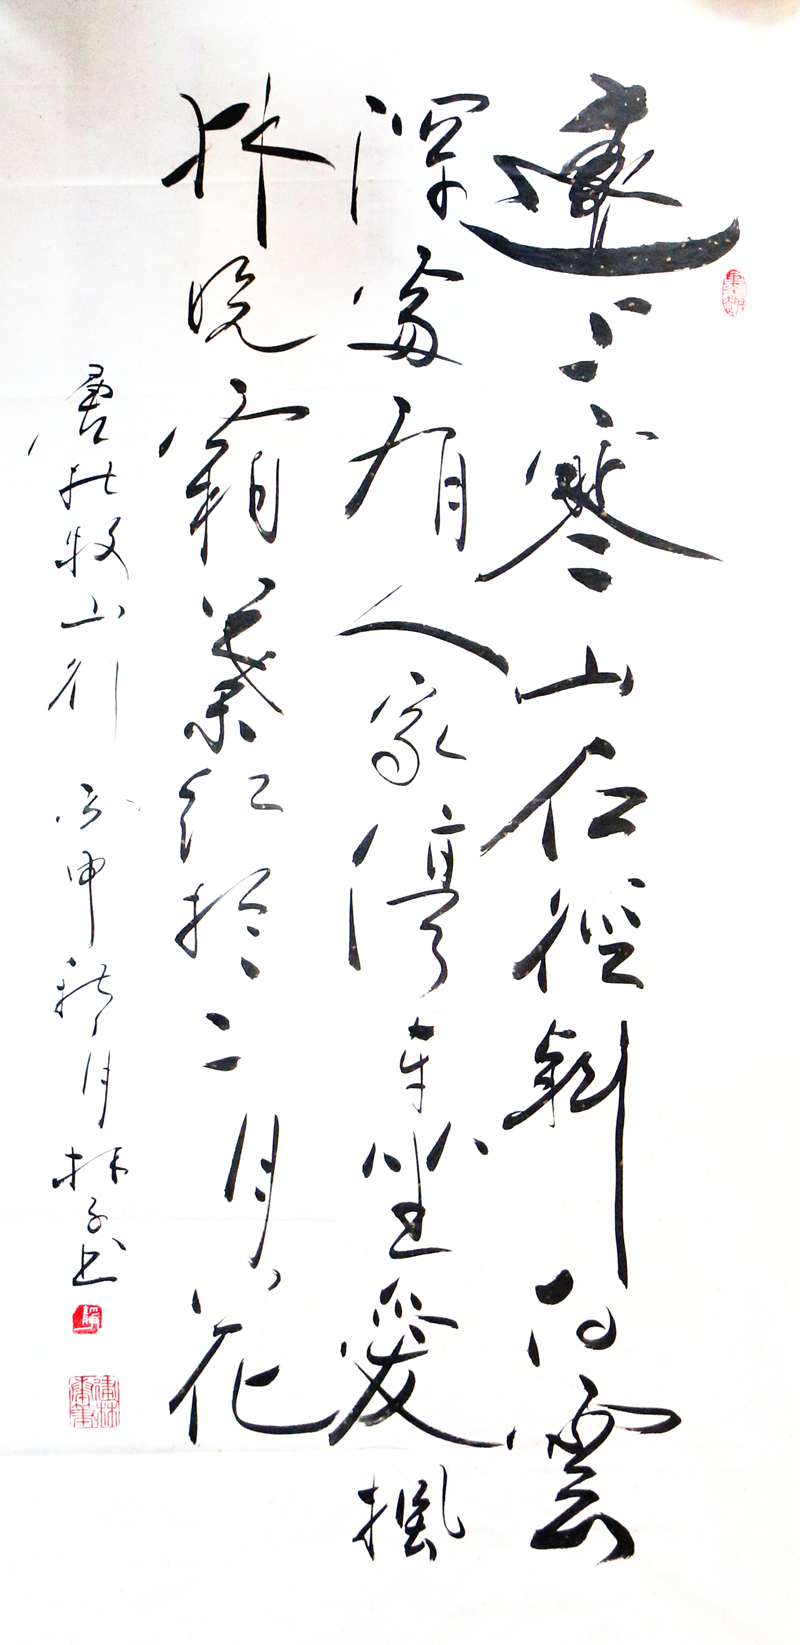 遠上寒山石徑斜白雲
深處有人家停車坐愛楓
林晚霜葉紅於二月花
唐杜牧山行 丙申秋月林子书